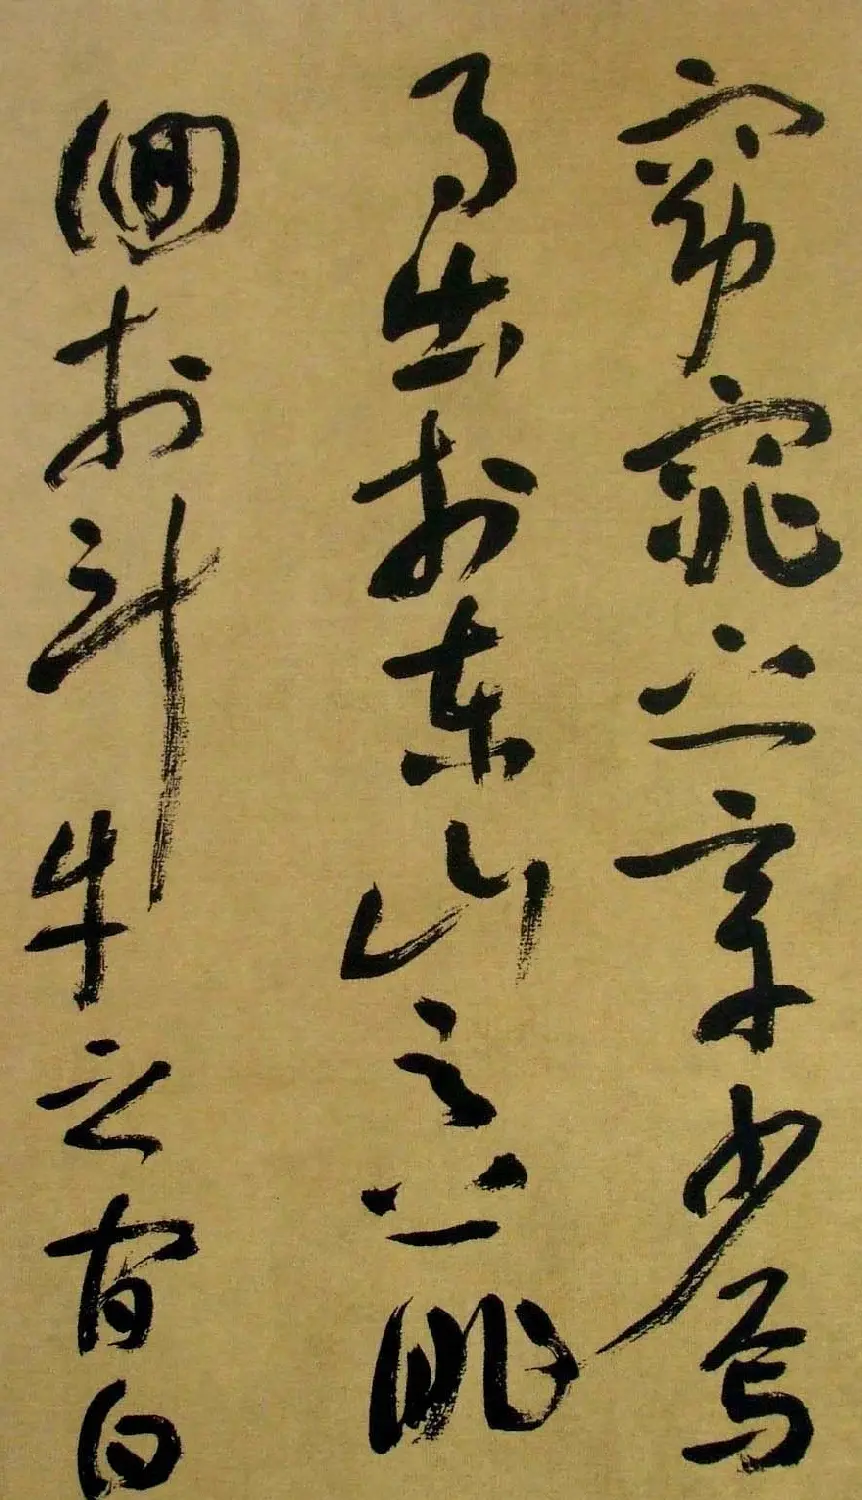 窈窕之章少焉
月出於東山之上徘
徊於斗牛之間白